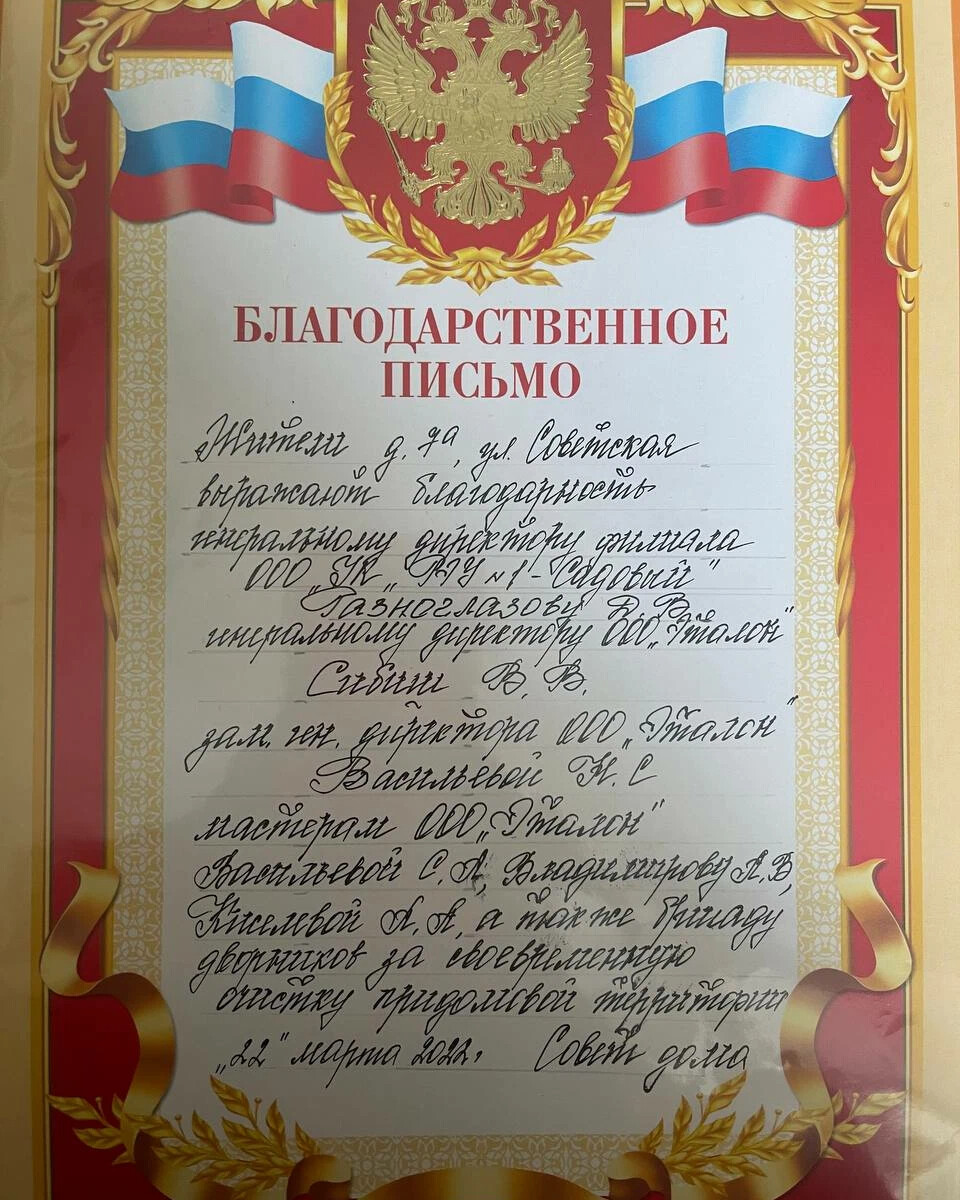 БЛАГОДАРСТВЕННОЕ
ПИСЬМО
Жители д. 7а, ул. Советская
выражают благодарность
генеральному директору филиала
ООО „УК „РЭУ №1-Садовый"
Разноглазову Д. В.
генеральному директору ООО „Эталон"
Сибиш В. В.
зам. ген. директора ООО „Эталон"
Васильевой Н. С
мастерам ООО „Эталон"
Васильевой С. А, Владимирову А. В,
Киселевой А. А, а также бригаду
дворников за своевременную
очистку придомовой территории
„22" марта 2022г Совет дома